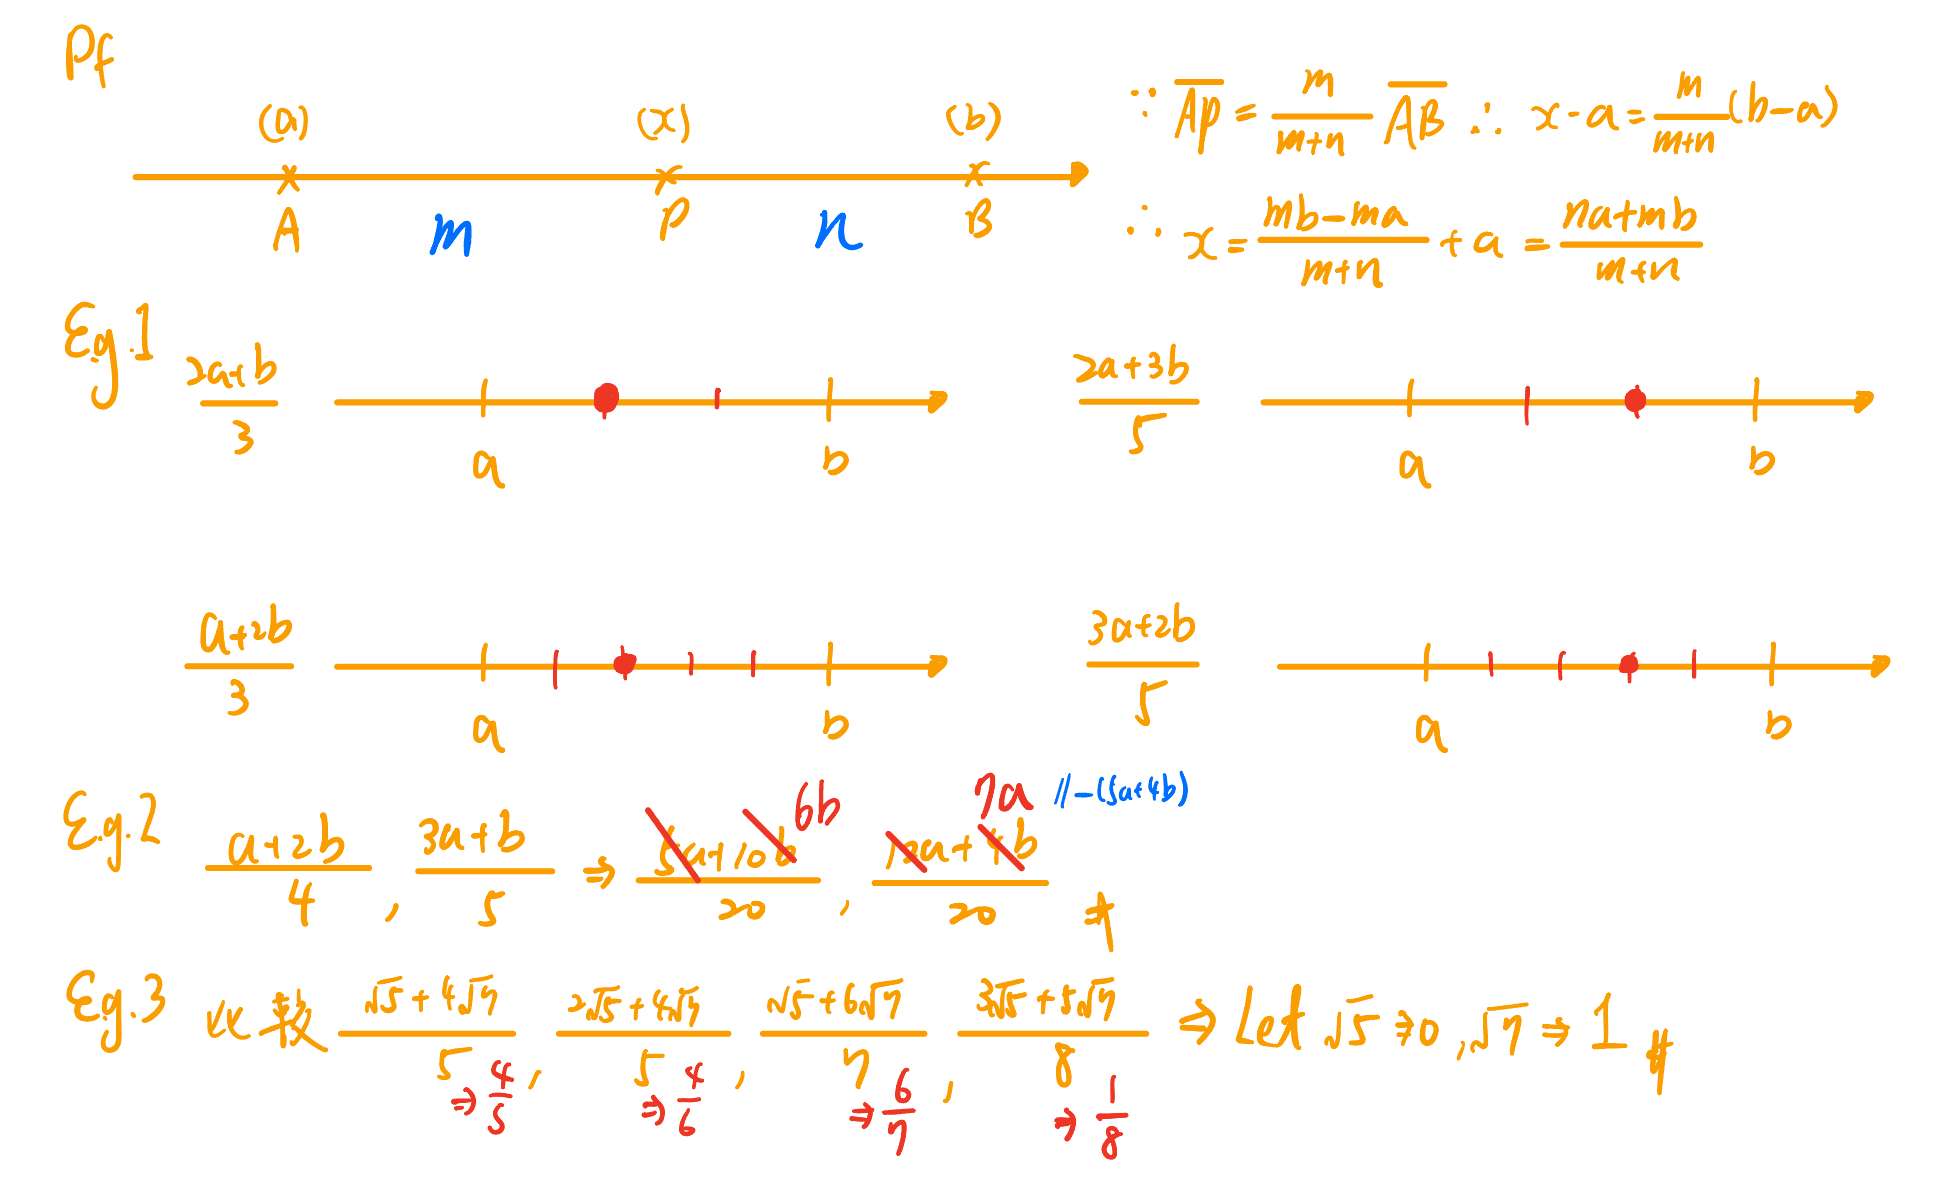 Pf
(a) (x) (b)
A P B
m n
∵ \overline{AP} = \frac{m}{m+n} \overline{AB} ∴ x-a = \frac{m}{m+n}(b-a)
∴ x = \frac{mb-ma}{m+n} + a = \frac{na+mb}{m+n}
Eg.1
\frac{2a+b}{3} a b
\frac{2a+3b}{5} a b
\frac{a+2b}{3} a b
\frac{3a+2b}{5} a b
Eg.2 \frac{a+2b}{4}, \frac{3a+b}{5} ⇒ \frac{5a+10b}{20}, \frac{12a+4b}{20} #
6b 7a //-(5a+4b)
Eg.3 比較 \frac{√5+4√7}{5}, \frac{2√5+4√7}{5}, \frac{√5+6√7}{7}, \frac{3√5+5√7}{8} ⇒ Let √5 ⇒ 0, √7 ⇒ 1 #
⇒ \frac{4}{5} ⇒ \frac{4}{6} ⇒ \frac{6}{7} ⇒ \frac{1}{8}